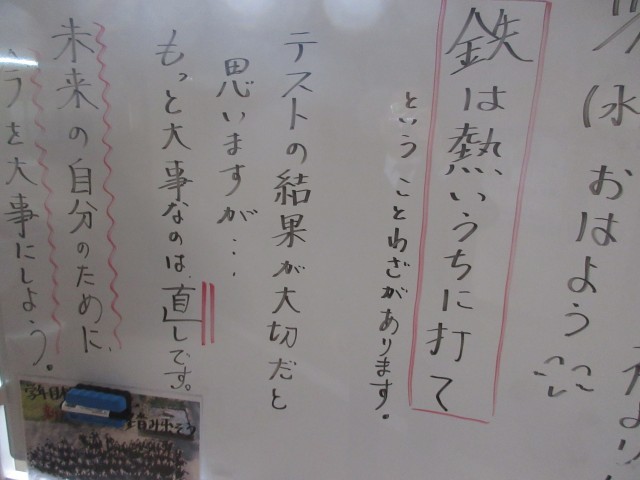 (水 おはよう
鉄は熱いうちに打て
ということわざがあります。
テストの結果が大切だと
思いますが…
もっと大事なのは、直しです。
未来の自分のために、
今を大事にしよう。